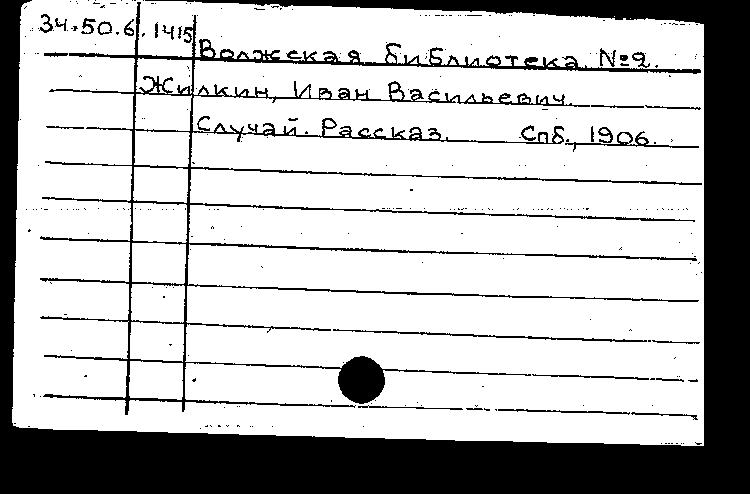 34.50.6.1415
Волжская библиотека №2.
Жилкин, Иван Васильевич.
Случай. Рассказ. Спб., 1906.